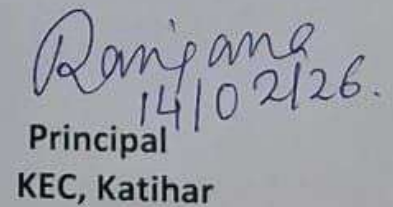 Ranjana
14/02/26.
Principal
KEC, Katihar